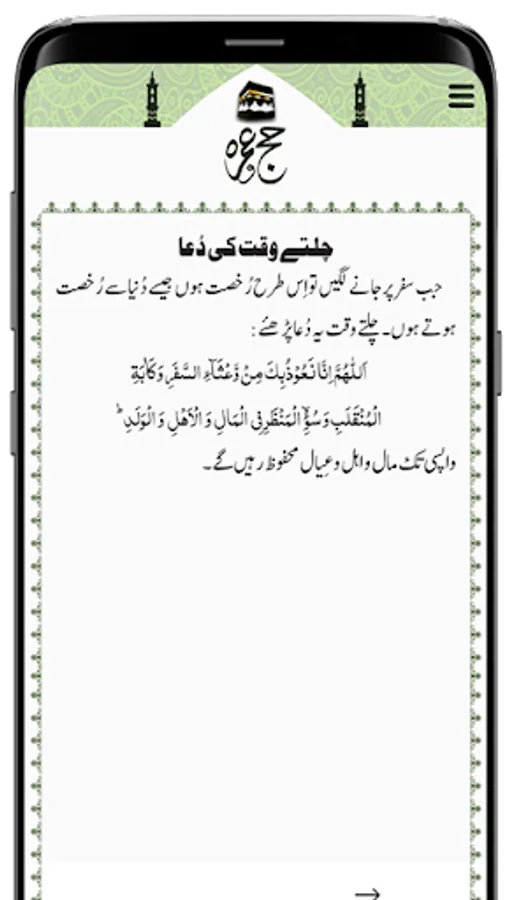 حج و عمرہ
چلتے وقت کی دُعا
جب سفر پر جانے لگیں تو اِس طرح رُخصت ہوں جیسے دُنیا سے رُخصت
ہوتے ہوں۔ چلتے وقت یہ دُعا پڑھئے :
اَللّٰهُمَّ اِنَّا نَعُوْذُ بِكَ مِنْ وَّعْثَآءِ السَّفَرِ وَكَاٰبَةِ
الْمُنْقَلَبِ وَسُوْٓءِ الْمَنْظَرِ فِی الْمَالِ وَ الْاَهْلِ وَ الْوَلَدِ ؕ
واپسی تک مال و اہل و عِیال محفوظ رہیں گے۔